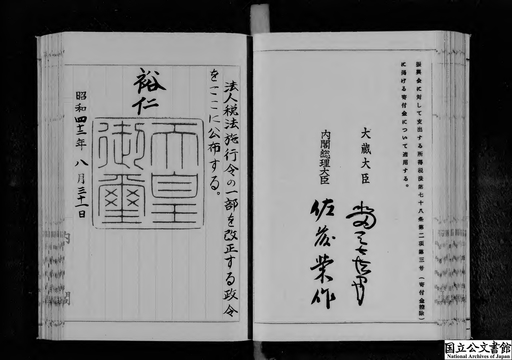 振興会に対して支出する所得税法第七十八条第二項第三号(寄付金控除)
に掲げる寄付金について適用する。
大蔵大臣
内閣総理大臣 佐藤榮作
法人税法施行令の一部を改正する政令
をここに公布する。
裕仁
天皇
御璽
昭和四十 年八月三十一日
国立公文書館
National Archives of Japan